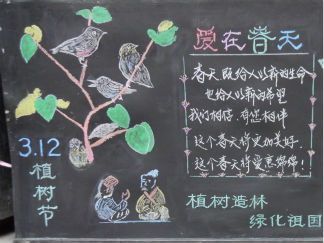 爱在春天
春天既给人以新的生命
也给人以新的希望
我们相信,有您相伴
这个春天将更加美好.
这个春天将爱意绵绵!
3.12
植树节
植树造林
绿化祖国